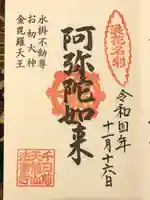 浪花名刹
令和四年
十一月十六日
阿弥陀如来
水掛不動尊
お初大神
金毘羅天王